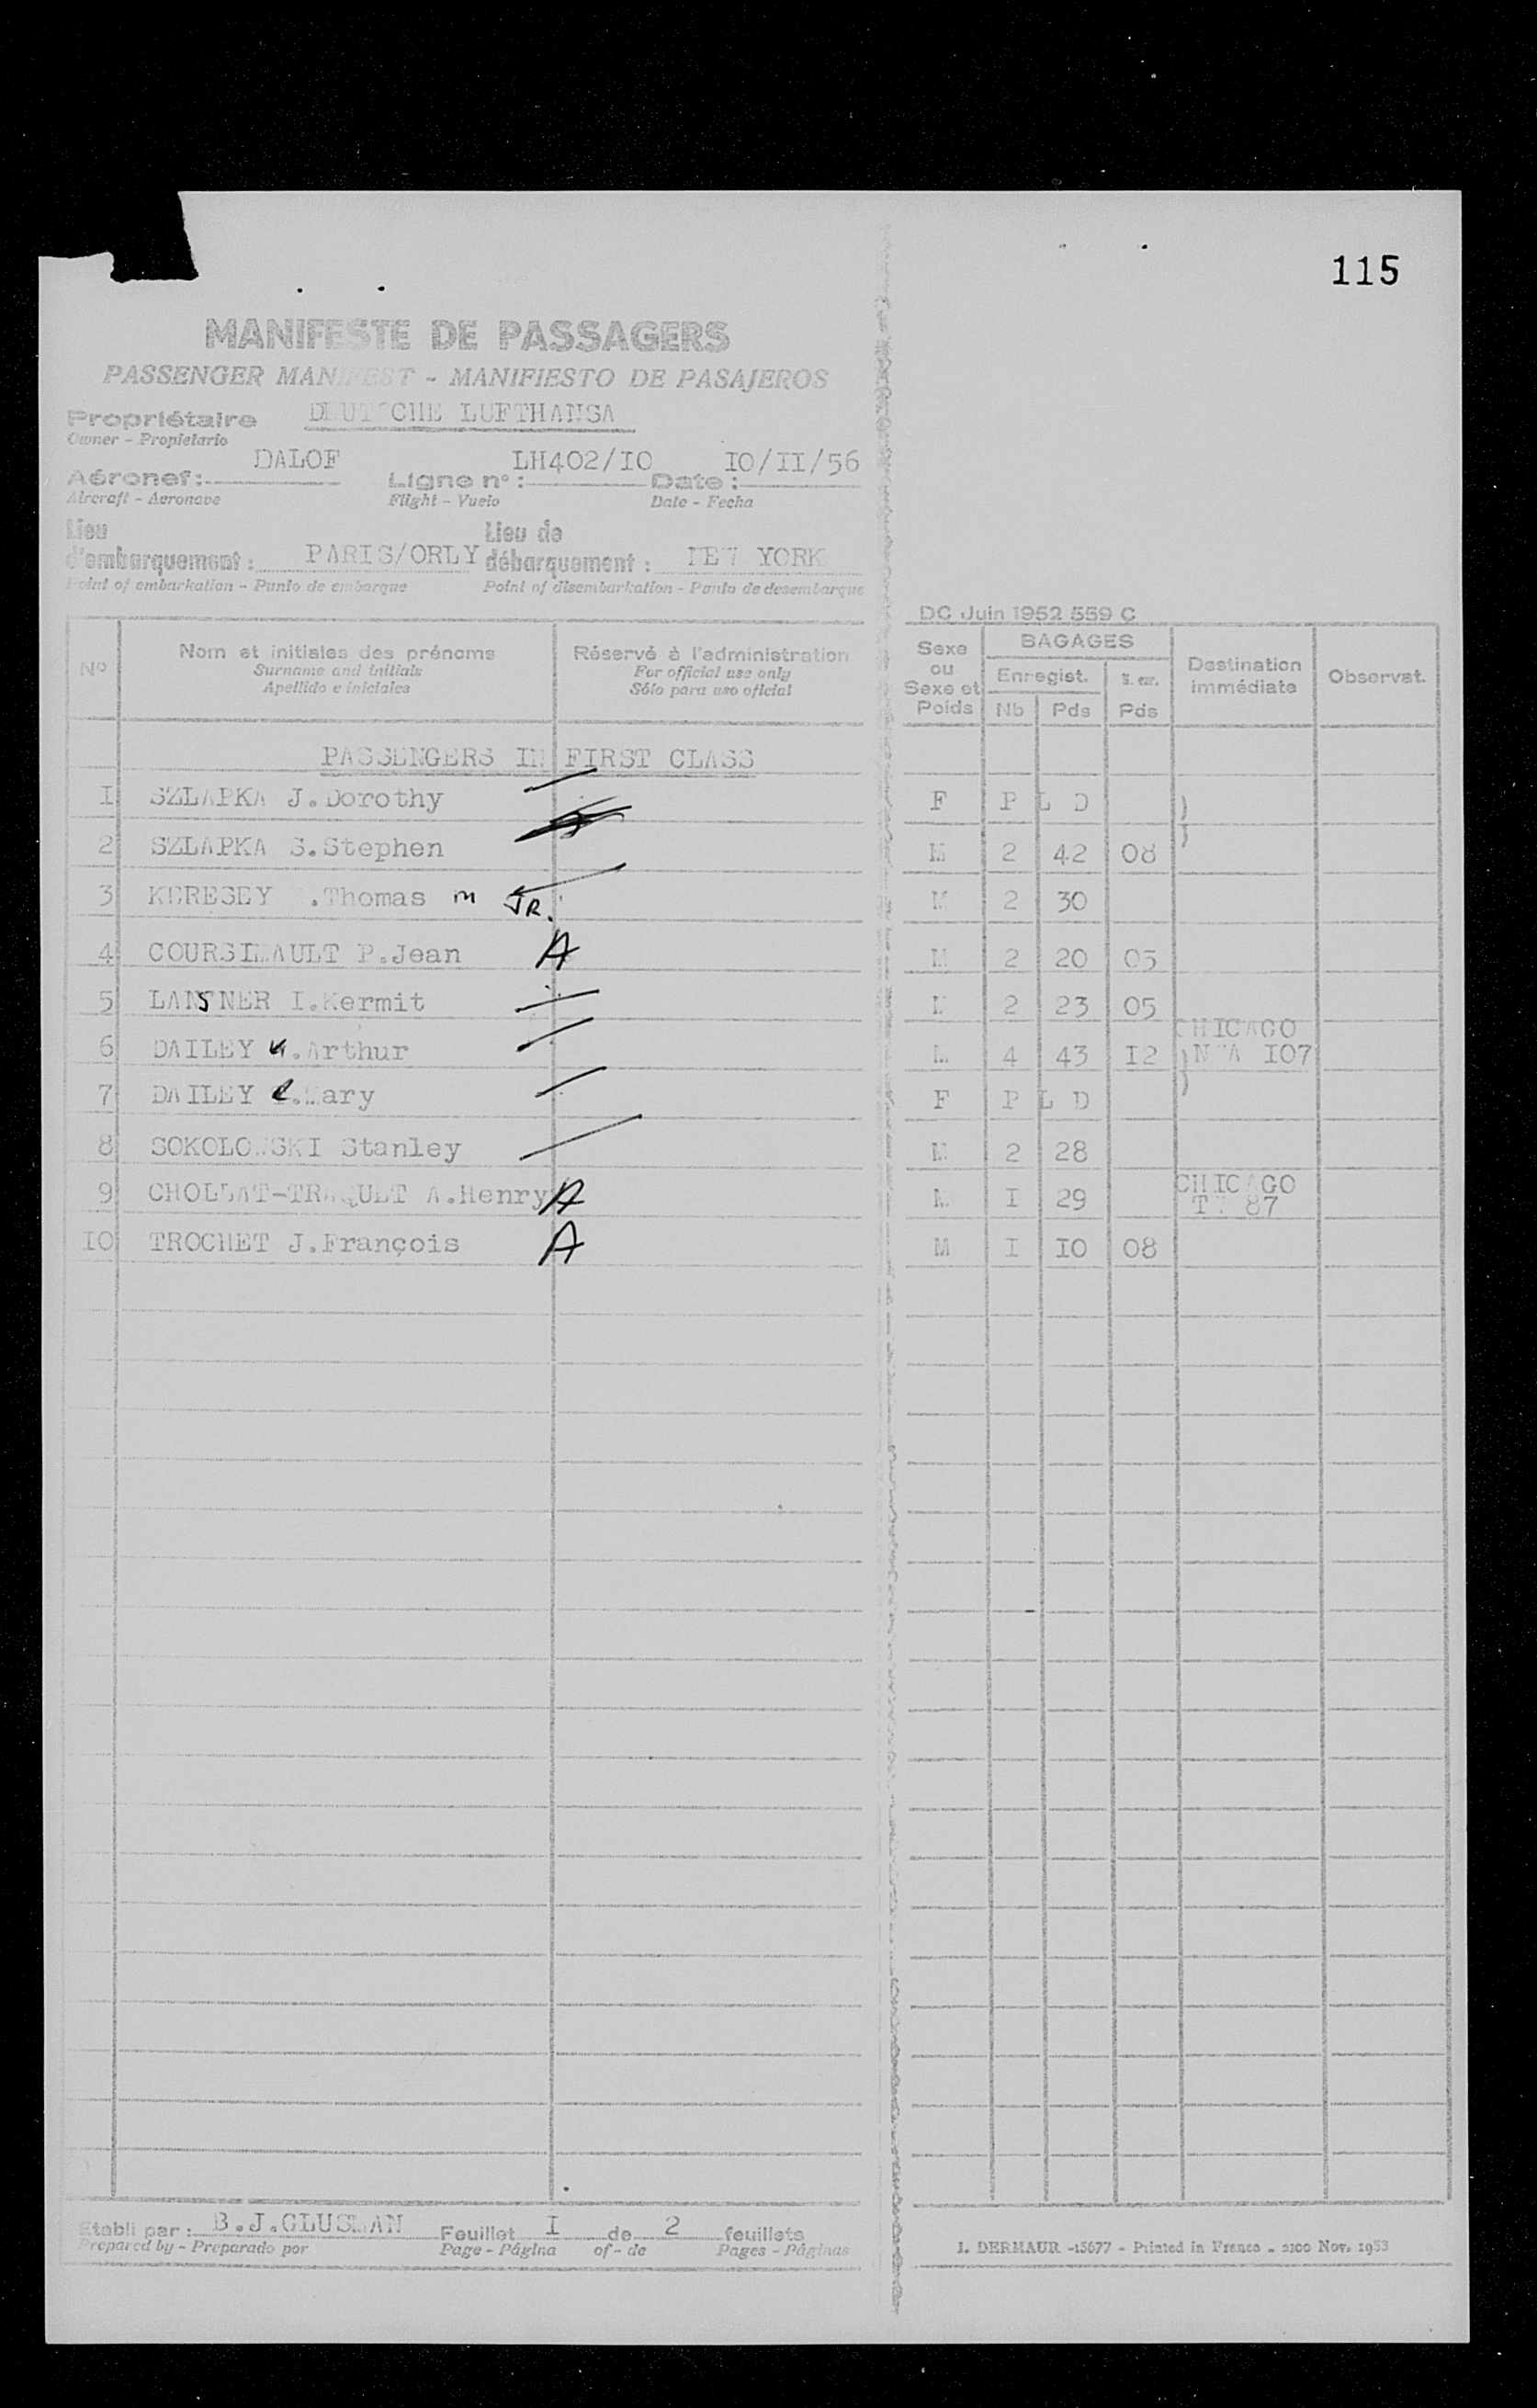 115
MANIFESTE DE PASSAGERS
PASSENGER MANIFEST - MANIFIESTO DE PASAJEROS
Propriétaire DEUTSCHE LUFTHANSA
Owner - Propietario
Aéronef: DALOF Ligne n°: LH402/IO Date: IO/II/56
Aircraft - Aeronave Flight - Vuelo Date - Fecha
Lieu d'embarquement: PARIS/ORLY Lieu de débarquement: NEW YORK
Point of embarkation - Punto de embarque Point of disembarkation - Punto de desembarque
DC Juin 1952 559 C
N° Nom et initiales des prénoms Réservé à l'administration Sexe ou Sexe et Poids BAGAGES Enregist. Nb Pds Pds Destination immédiate Observat.
Surname and initials For official use only
Apellido e iniciales Sólo para uso oficial
PASSENGERS IN FIRST CLASS
I SZLAPKA J.Dorothy F P L D )
2 SZLAPKA S.Stephen M 2 42 08 )
3 .Thomas m JR. M 2 30
4 P.Jean A M 2 20 05
5 LANSNER I.Kermit M 2 23 05
CHICAGO
6 DAILEY .Arthur M 4 43 I2 ) NWA IO7
7 DAILEY .Mary F P L D )
8 SOKOLOWSKI Stanley M 2 28
9 CHOLLAT-TRAQUET A.Henry A M I 29 CHICAGO
87
IO TROCHET J.François A M I IO 08
Etabli par: B.J.GLUSMAN Feuillet I de 2 feuillets
Prepared by - Preparado por Page - Página of - de Pages - Páginas
J. DERMAUR -15677 - Printed in France - Nov. 1953